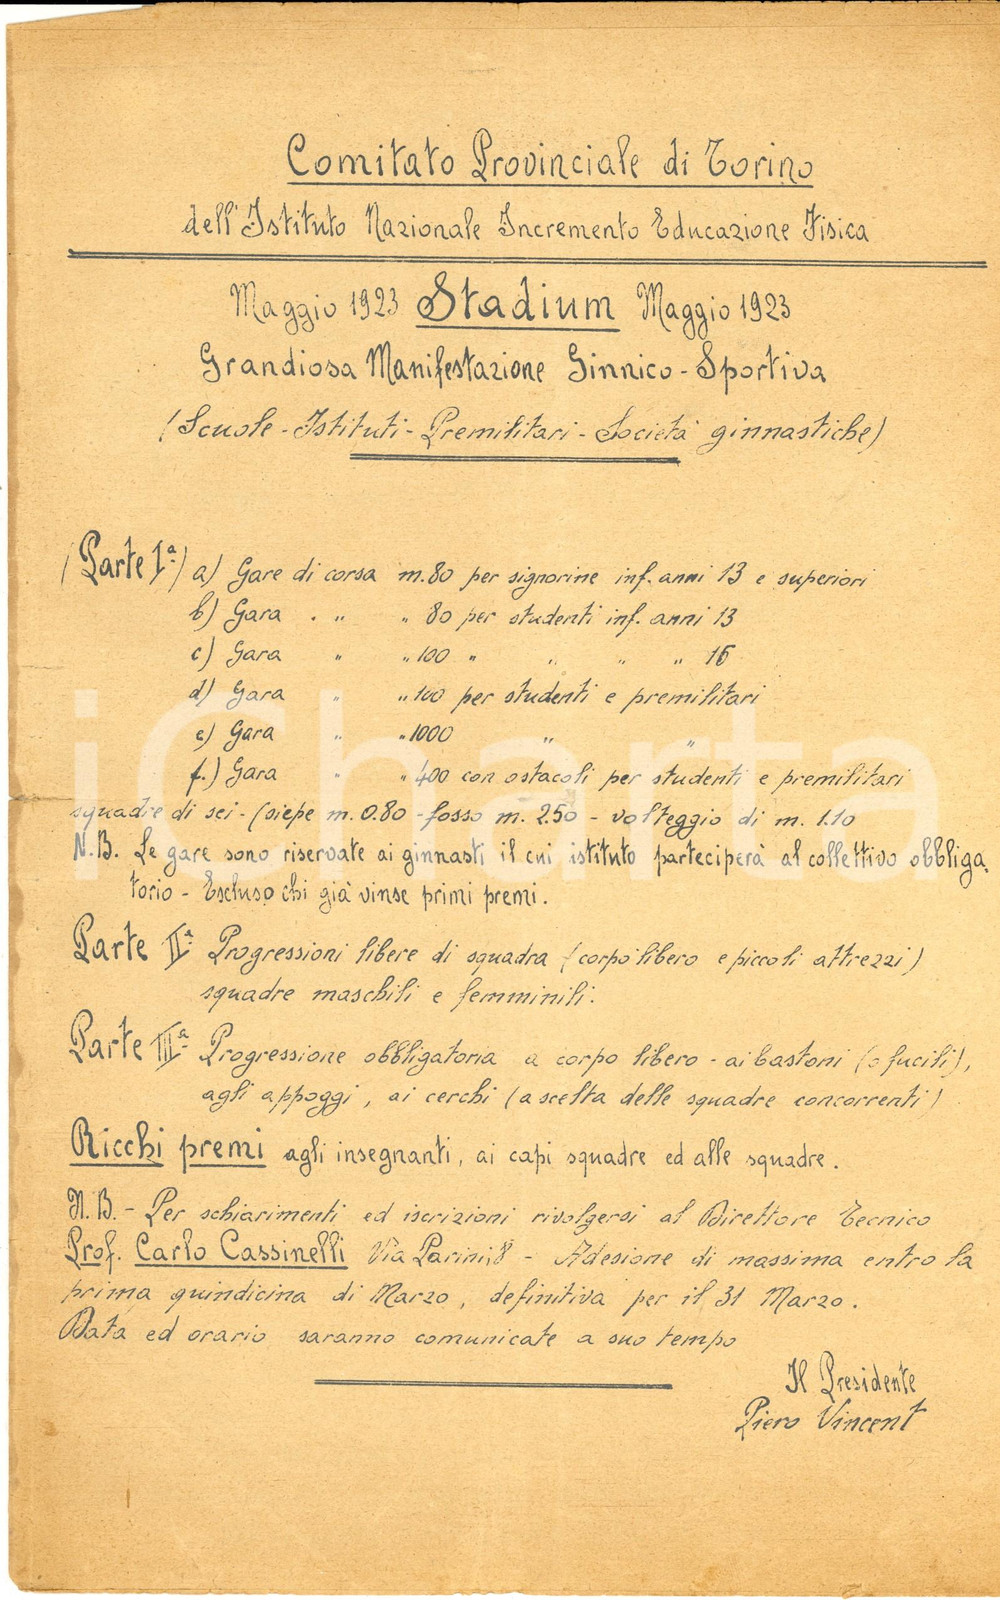 Comitato Provinciale di Torino
dell'Istituto Nazionale Incremento Educazione Fisica
Maggio 1923 Stadium Maggio 1923
Grandiosa Manifestazione Ginnico - Sportiva
(Scuole - Istituti - Premilitari - Società ginnastiche)
(Parte Iª) a) Gare di corsa m. 80 per signorine inf. anni 13 e superiori
b) Gara . " " 80 per studenti inf. anni 13
c) Gara " " 100 " " " " 16
d) Gara " " 100 per studenti e premilitari
e) Gara " " 1000 " "
f.) Gara " " 400 con ostacoli per studenti e premilitari
squadre di sei - (siepe m. 0.80 - fosso m. 2.50 - volteggio di m. 1.10
N.B. Le gare sono riservate ai ginnasti il cui istituto parteciperà al collettivo obbliga-
torio - Escluso chi già vinse primi premi.
Parte IIª Progressioni libere di squadra (corpo libero e piccoli attrezzi)
squadre maschili e femminili.
Parte IIIª Progressione obbligatoria a corpo libero - ai bastoni (o fucili),
agli appoggi, ai cerchi (a scelta delle squadre concorrenti)
Ricchi premi agli insegnanti, ai capi squadre ed alle squadre.
N.B. - Per schiarimenti ed iscrizioni rivolgersi al Direttore Tecnico
Prof. Carlo Cassinelli Via Parini, 8 - Adesione di massima entro la
prima quindicina di Marzo, definitiva per il 31 Marzo.
Data ed orario saranno comunicate a suo tempo
Il Presidente
Piero Vincent
iCharta